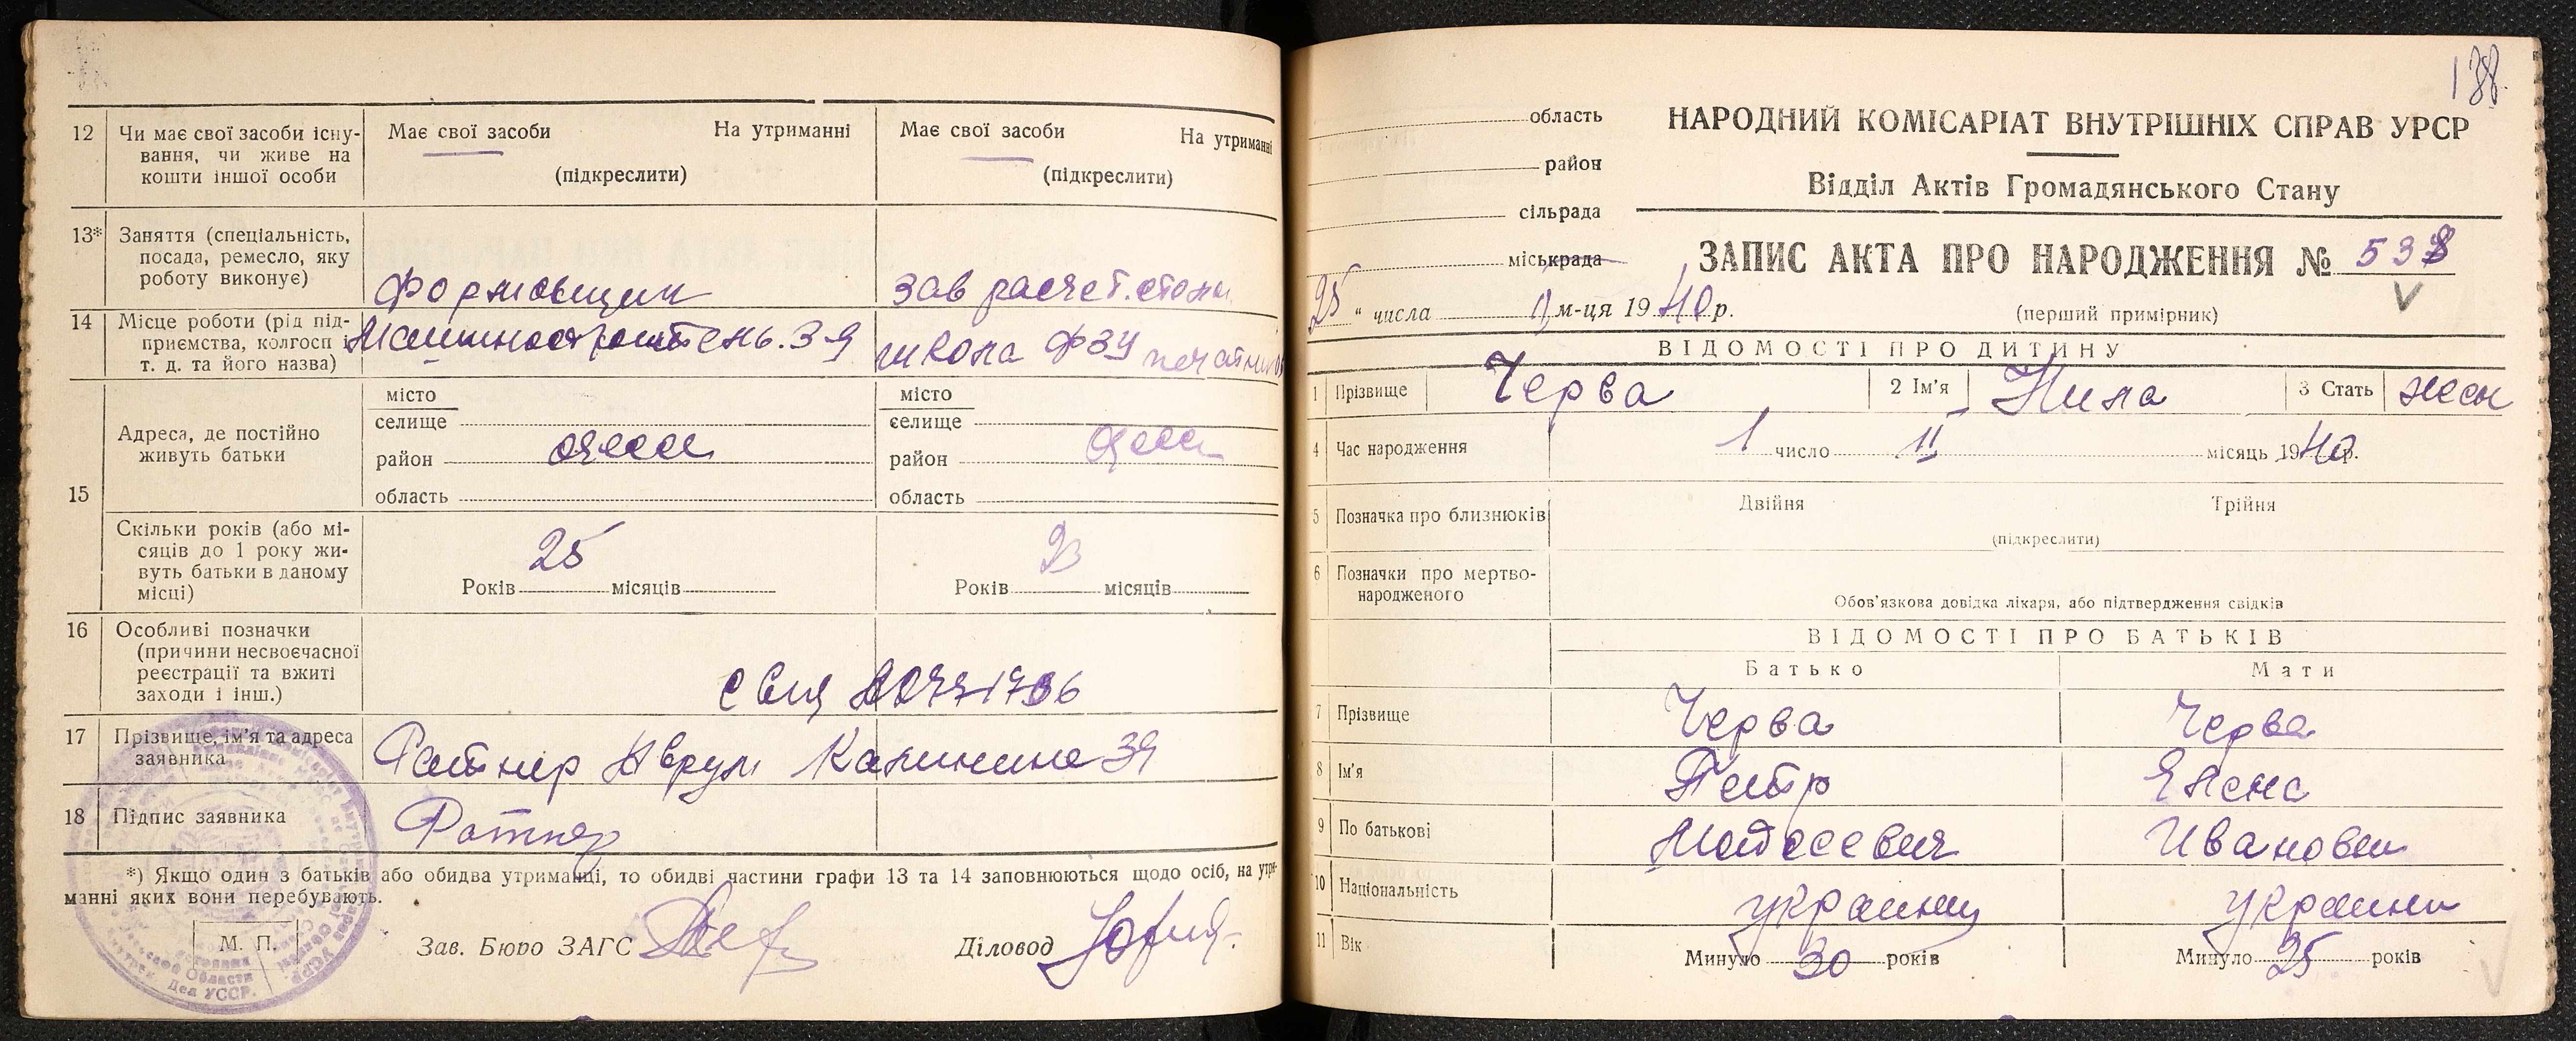 12 Чи має свої засоби існу-
вання, чи живе на
кошти іншої особи
Має свої засоби На утриманні
(підкреслити)
Має свої засоби На утриманні
(підкреслити)
13* Заняття (спеціальність,
посада, ремесло, яку
роботу виконує)
формовщик
зав расчет. стола
14 Місце роботи (рід під-
приємства, колгосп і
т. д. та його назва)
школа ФЗУ
15 Адреса, де постійно
живуть батьки
місто
селище
район Одесса
область
місто
селище
район Одесса
область
Скільки років (або мі-
сяців до 1 року жи-
вуть батьки в даному
місці)
25
Років місяців
Років місяців
16 Особливі позначки
(причини несвоєчасної
реєстрації та вжиті
заходи і інш.)
17 Прізвище, ім'я та адреса
заявника
Ратнер Аврум Калинина 39
18 Підпис заявника
Ратнер
*) Якщо один з батьків або обидва утриманці, то обидві частини графи 13 та 14 заповнюються щодо осіб, на утри-
манні яких вони перебувають.
М. П.
Зав. Бюро ЗАГС
Діловод
138.
область
район
сільрада
міськрада
НАРОДНИЙ КОМІСАРІАТ ВНУТРІШНІХ СПРАВ УРСР
Відділ Актів Громадянського Стану
ЗАПИС АКТА ПРО НАРОДЖЕННЯ № 538
25 " числа II м-ця 1940 р.
(перший примірник)
ВІДОМОСТІ ПРО ДИТИНУ
1 Прізвище Черва 2 Ім'я Нила 3 Стать жен
4 Час народження 1 число II місяць 1940 р.
5 Позначка про близнюків Двійня Трійня
(підкреслити)
6 Позначки про мертво-
народженого
Обов'язкова довідка лікаря, або підтвердження свідків
ВІДОМОСТІ ПРО БАТЬКІВ
Батько Мати
7 Прізвище Черва Черва
8 Ім'я Петр Елена
9 По батькові Мойсеевич Ивановн
10 Національність украинец украинк
11 Вік Минуло 30 років Минуло 25 років